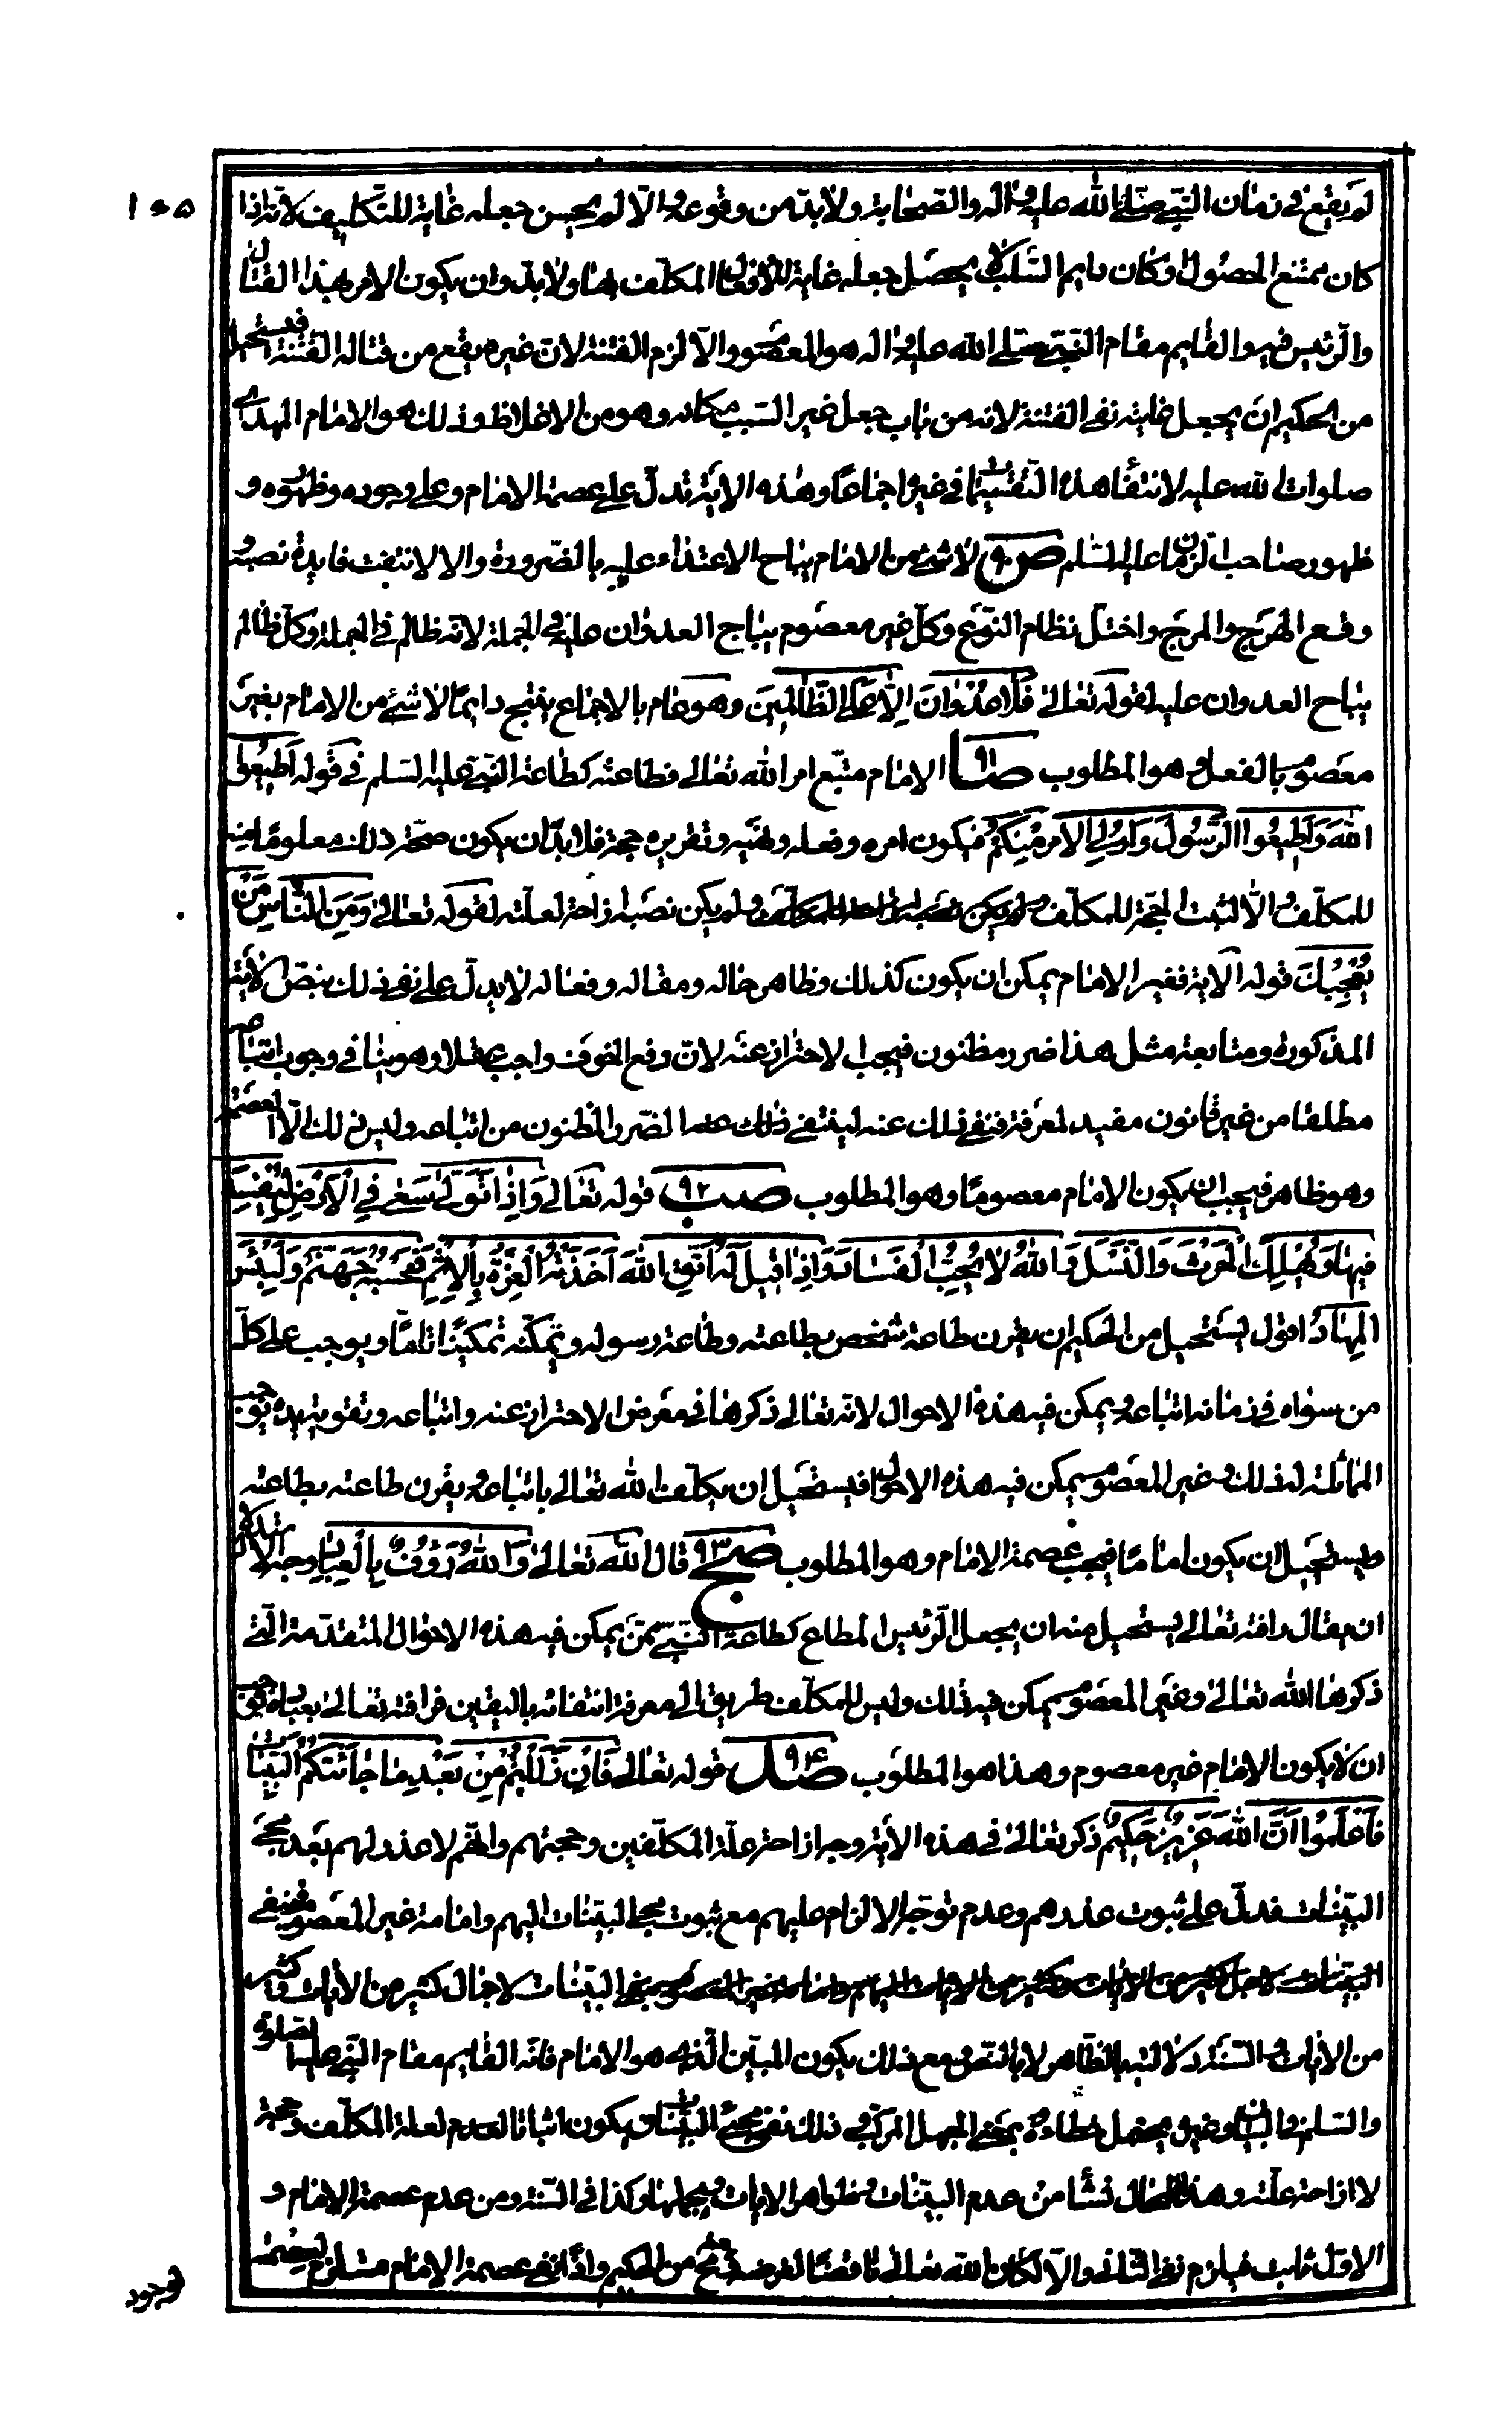 ١٠٥
لم يقع فى زمان النبى صلى الله عليه و اله و الصحابة و لا بد من وقوعه و الا لم يحسن جعله غاية للتكليف لانه اذا
كان ممتنع الحصول و كان دايم السلب لا يحصل جعله غاية لافعال المكلف هنا و لا بد و ان يكون الامر بهذا القتال
و الرئيس فيه و القايم مقام النبى صلى الله عليه و اله هو المعصوم و الا لزم الفتنة لان غيره يقع من قتاله الفتنة فيستحيل
من الحكيم ان يجعل غايته نفى الفتنة لانه من باب جعل غير السبب مكانه و هو من الاغلاط و ذلك هو الامام المهدى
صلوات الله عليه لانتفاء هذه التقسيمات فى غيره اجماعا و هذه الاية تدل على عصمة الامام و على وجوده و ظهوره و
ظهور صاحب الزمان عليه السلم ص ٩٠ لا شئ من الامام يباح الاعتداء عليه بالضرورة و الا لانتفت فايدة نصبه و
وقع الهرج و المرج و اختل نظام النوع و كل غير معصوم يباح العدوان عليه فى الجملة لانه ظالم فى الجملة و كل ظالم
يباح العدوان عليه لقوله تعالى فلا عدوان الا على الظالمين و هو عام بالاجماع ينتج دايما لا شئ من الامام بغير
معصوم بالفعل و هو المطلوب صا ٩١ الامام متبع امر الله تعالى و طاعته كطاعة النبى عليه السلم فى قوله اطيعوا
الله و اطيعوا الرسول و اولى الامر منكم فيكون امره و فعله و نهيه و تقريره حجة فلا بد ان يكون صحة ذلك معلوما منه
للمكلف و الا لثبت الحجة للمكلف و لم يكن نصبه ازاحة لعلته لقوله تعالى و من الناس من
يعجبك قوله الاية فغير الامام يمكن ان يكون كذلك و ظاهر حاله و مقاله و فعاله لا يدل على نفى ذلك بنص الاية
المذكورة و متابعة مثل هذا ضرر مظنون فيجب الاحتراز عنه لان دفع الخوف واجب عقلا و هو ينافى وجوب اتباعه
مطلقا من غير قانون مفيد لمعرفة نفى ذلك عنه لينتفى ذلك عنه الضرر المظنون من اتباعه و ليس ذلك الا العصمة
و هو ظاهر فيجب ان يكون الامام معصوما و هو المطلوب صب ٩٢ قوله تعالى و اذا تولى سعى فى الارض ليفسد
فيها و يهلك الحرث و النسل و الله لا يحب الفساد و اذا قيل له اتق الله اخذته العزة بالاثم فحسبه جهنم و لبئس
المهاد اقول يستحيل من الحكيم ان يقرن طاعة شخص بطاعته و طاعة رسوله و يمكنه تمكينا تاما و يوجب على كل
من سواه فى زمانه اتباعه و يمكن فيه هذه الاحوال لانه تعالى ذكرها فى معرض الاحتراز عنه و اتباعه و تقوية يده يوجب
المماثلة لذلك و غير المعصوم يمكن فيه هذه الاحوال فيستحيل ان يكلف الله تعالى باتباعه و يقرن طاعته بطاعته
و يستحيل ان يكون اماما فيجب عصمة الامام و هو المطلوب صج ٩٣ قال الله تعالى و الله رؤف بالعباد وجه الاستدلال
ان يقال رافته تعالى يستحيل منه ان يجعل الرئيس المطاع كطاعة النبى ممن يمكن فيه هذه الاحوال المتقدمة التى
ذكرها الله تعالى و غير المعصوم يمكن فيه ذلك و ليس للمكلف طريق الى معرفة انتفائه باليقين فرافته تعالى بعباده توجب
ان لا يكون الامام غير معصوم و هذا هو المطلوب صد ٩٤ قوله تعالى فان زللتم من بعد ما جائتكم البينات
فاعلموا ان الله عزيز حكيم ذكر تعالى فى هذه الاية وجه ازاحة علة المكلفين و حجتهم و انهم لا عذر لهم بعد مجئ
البينات فدل على ثبوت عذرهم و عدم توجه الالزام عليهم مع ثبوت مجئ البينات اليهم و امامة غير المعصوم ينفى
البينات لاجمال كثير من الايات و كثير
من الايات و السنة دلالتها بالظاهر لا بالنص و مع ذلك يكون المبين الذى هو الامام فانه القايم مقام النبى عليه الصلوة
و السلم فى البيان و غيره يحتمل خطاءه بمعنى الجهل المركب و ذلك نفى مجئ البينات و يكون اثباتا لعدم لعلة المكلف و حجة
لا ازاحة علته و هذا المحال نشأ من عدم البينات و ظواهر الايات و مجملها و كذا فى السنة و من عدم عصمة الامام و
الاول ثابت فيلزم نفى الثانى و الا لكان الله تعالى ناقضا لغرضه و قبح من الحكيم و اذا نفى عصمة الامام مستلزم
فوجود